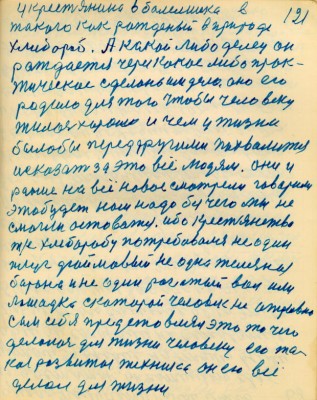 121
у крестянина
такого как рожденый в природе
хлибороб. А какой либо делец он
рождается через какое либо прак-
тическое сделаным дело, оно его
родило для того чтобы человеку
жилося хорошо и чем у жизни
было бы перед другими похвалится
и сказат за это всё людям. они и
раньше на всё новое смотрели говорили
это будет нам надо без чего мы не
смогли остоватся. ибо крестянство
т/е хлиборобу потребовался не один
плуг не одна железная
барона и не один рогатый вол или
лошадка скоторой человек не
сам себя представлял это то чего
делолося для жизни человеку его та-
кая развитая техника он ею всё
делал для жизни